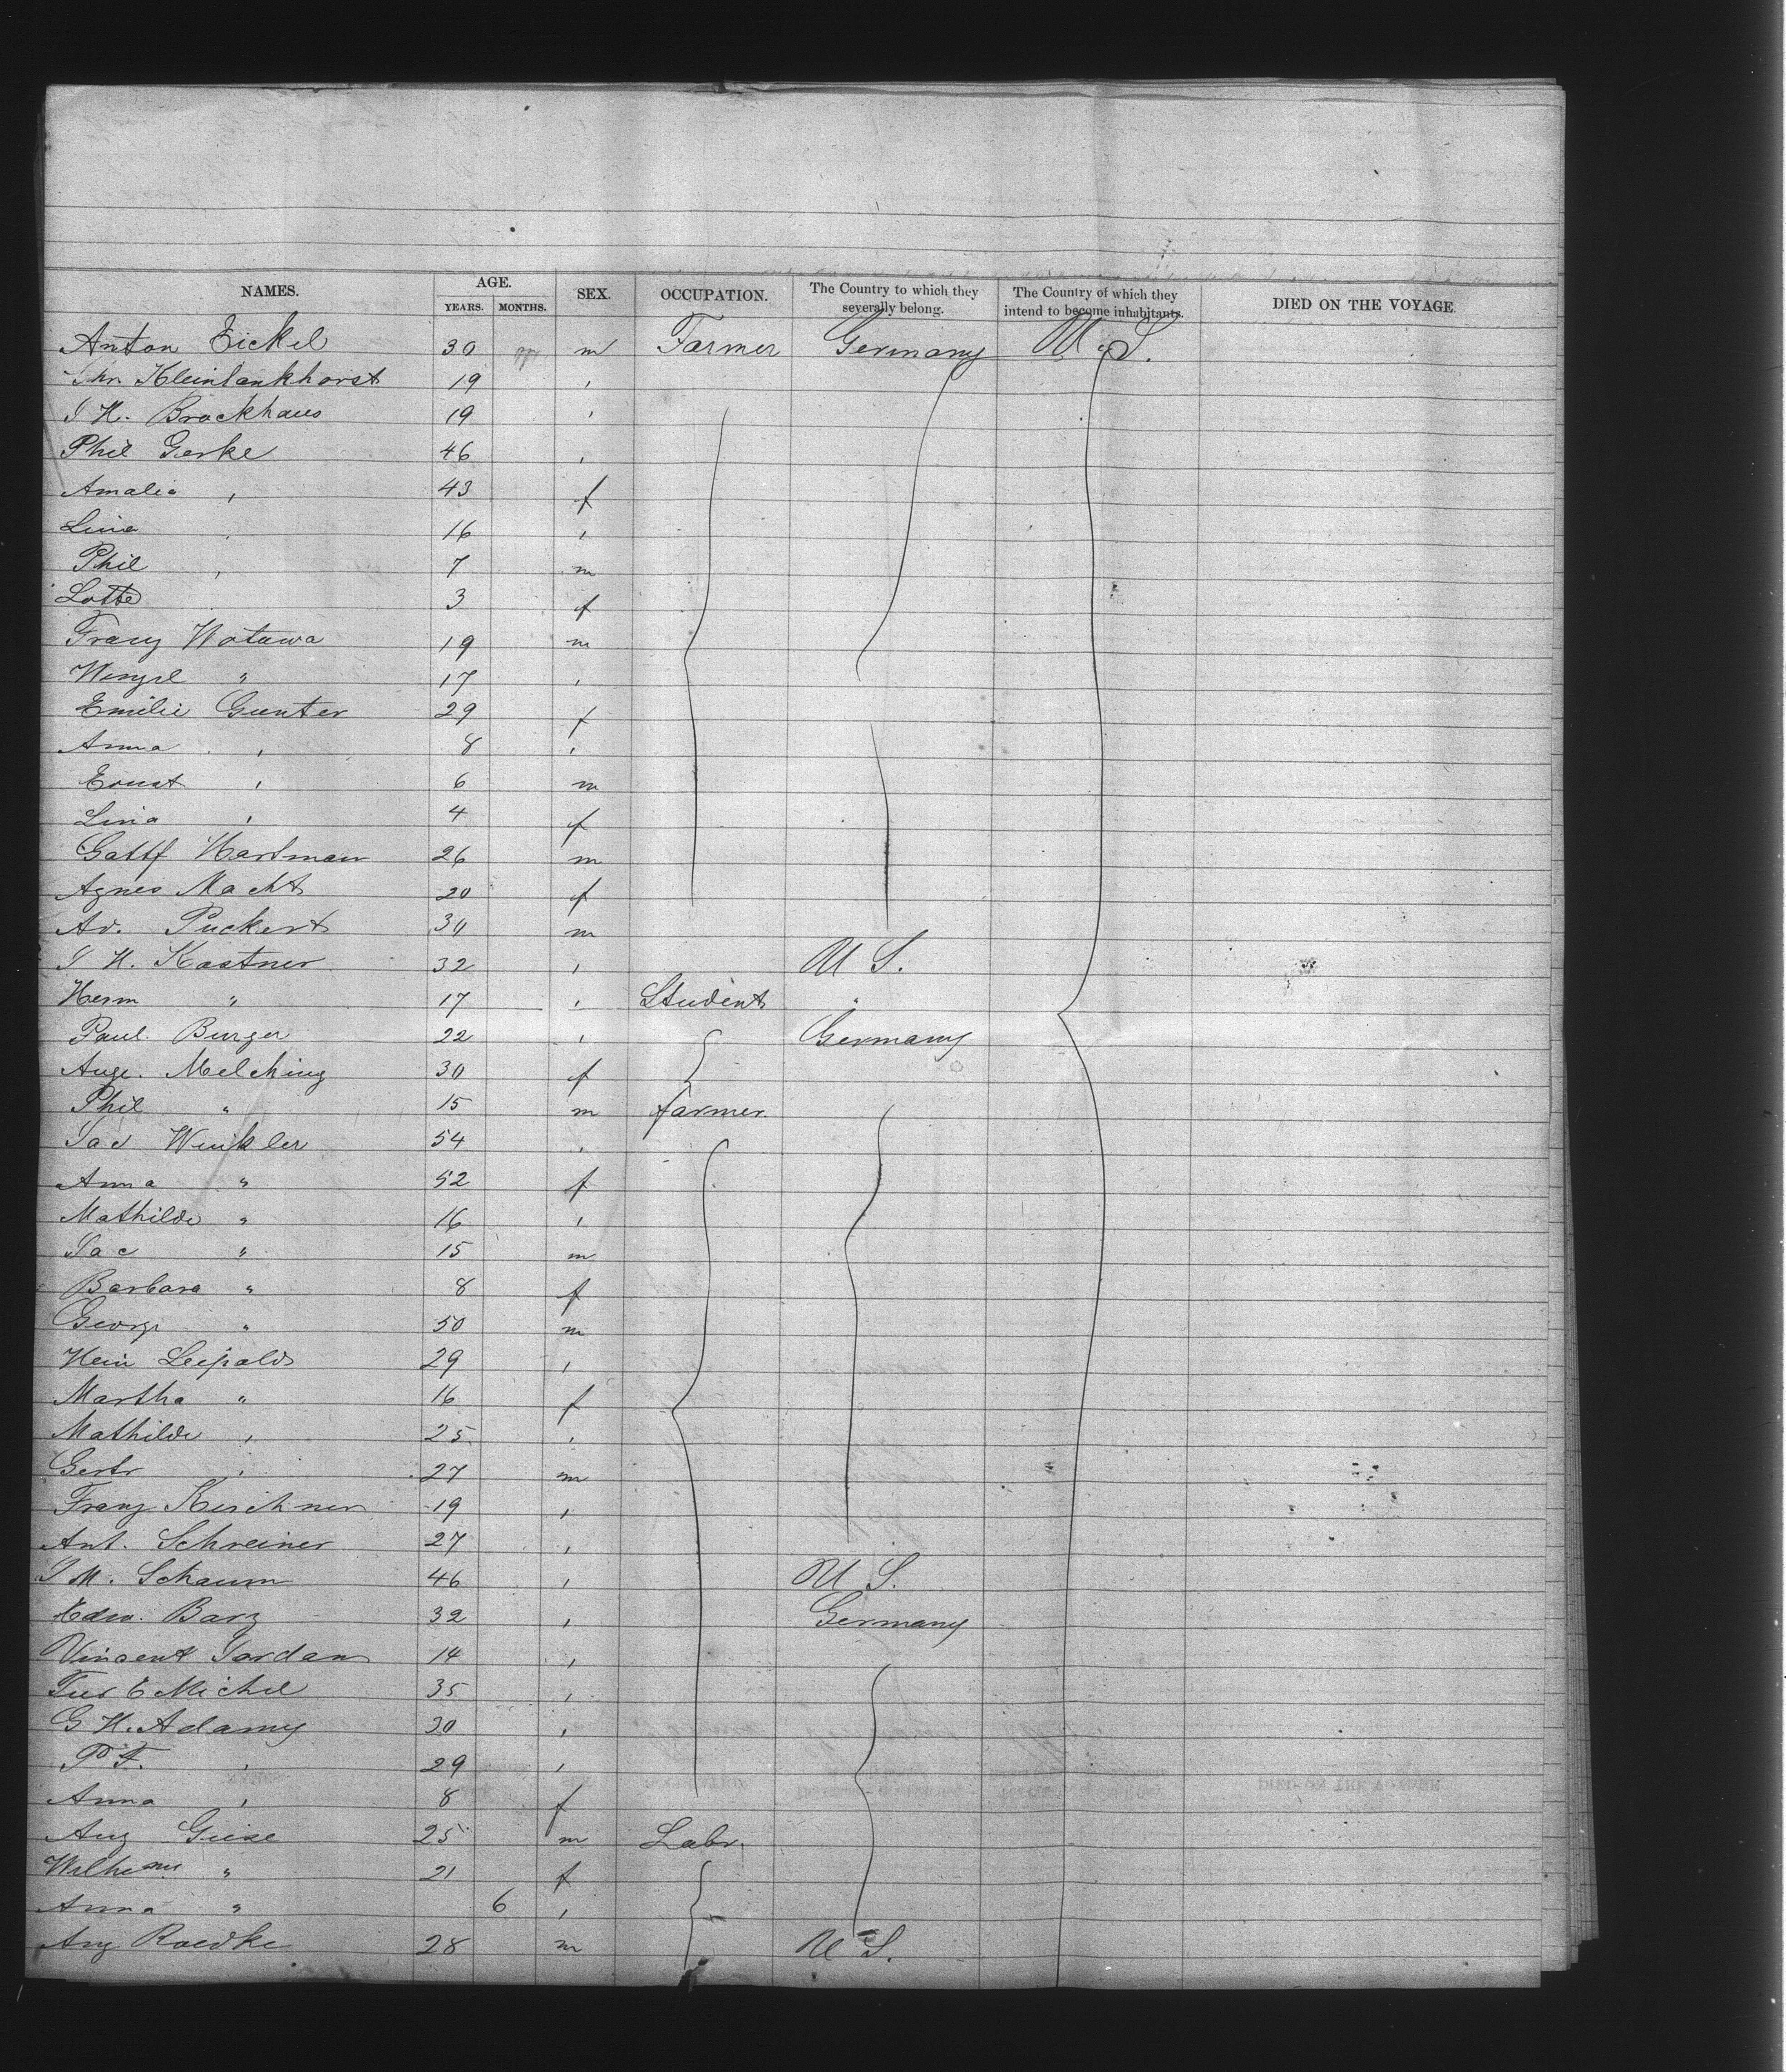 NAMES. AGE. YEARS. MONTHS. SEX. OCCUPATION. The Country to which they severally belong. The Country of which they intend to become inhabitants. DIED ON THE VOYAGE.
Anton Eickel 30 m Farmer Germany U. S.
Chr. Kleinlankhorst 19 "
J H. Brockhaus 19 "
Phil Gerke 46 "
Amalia " 43 f
Lina " 16 "
Phil " 7 m
Lotte 3 f
Franz Wotawa 19 m
Wenzel " 17 "
Emilie Gunter 29 f
Anna " 8 "
Ernst " 6 m
Lina " 4 f
Gottf Hartman 26 m
Agnes Macht 20 f
Ad. Puckert 30 m
J H. Kastner 32 " U S.
Herm " 17 " Student "
Paul Burger 22 " Germany
Auge. Melching 30 f
Phil " 15 m farmer
Jac Winkler 54 "
Anna " 52 f
Mathilde " 16 "
Jac " 15 m
Barbara " 8 f
George " 50 m
Hein Leipold 29 "
Martha " 16 f
Mathilde " 25 "
27 m
Franz Kirchner 19 "
Ant. Schreiner 27 "
J M. Schaum 46 " U S.
Edw. Barz 32 " Germany
Vincent Jordan 14 "
Michel 35 "
G H. Adamy 30 "
P F. " 29 "
Anna " 8 f
Aug Giese 25 m Labr.
Wilhelme " 21 f
Anna " 6 "
Aug Raedke 28 m U S.